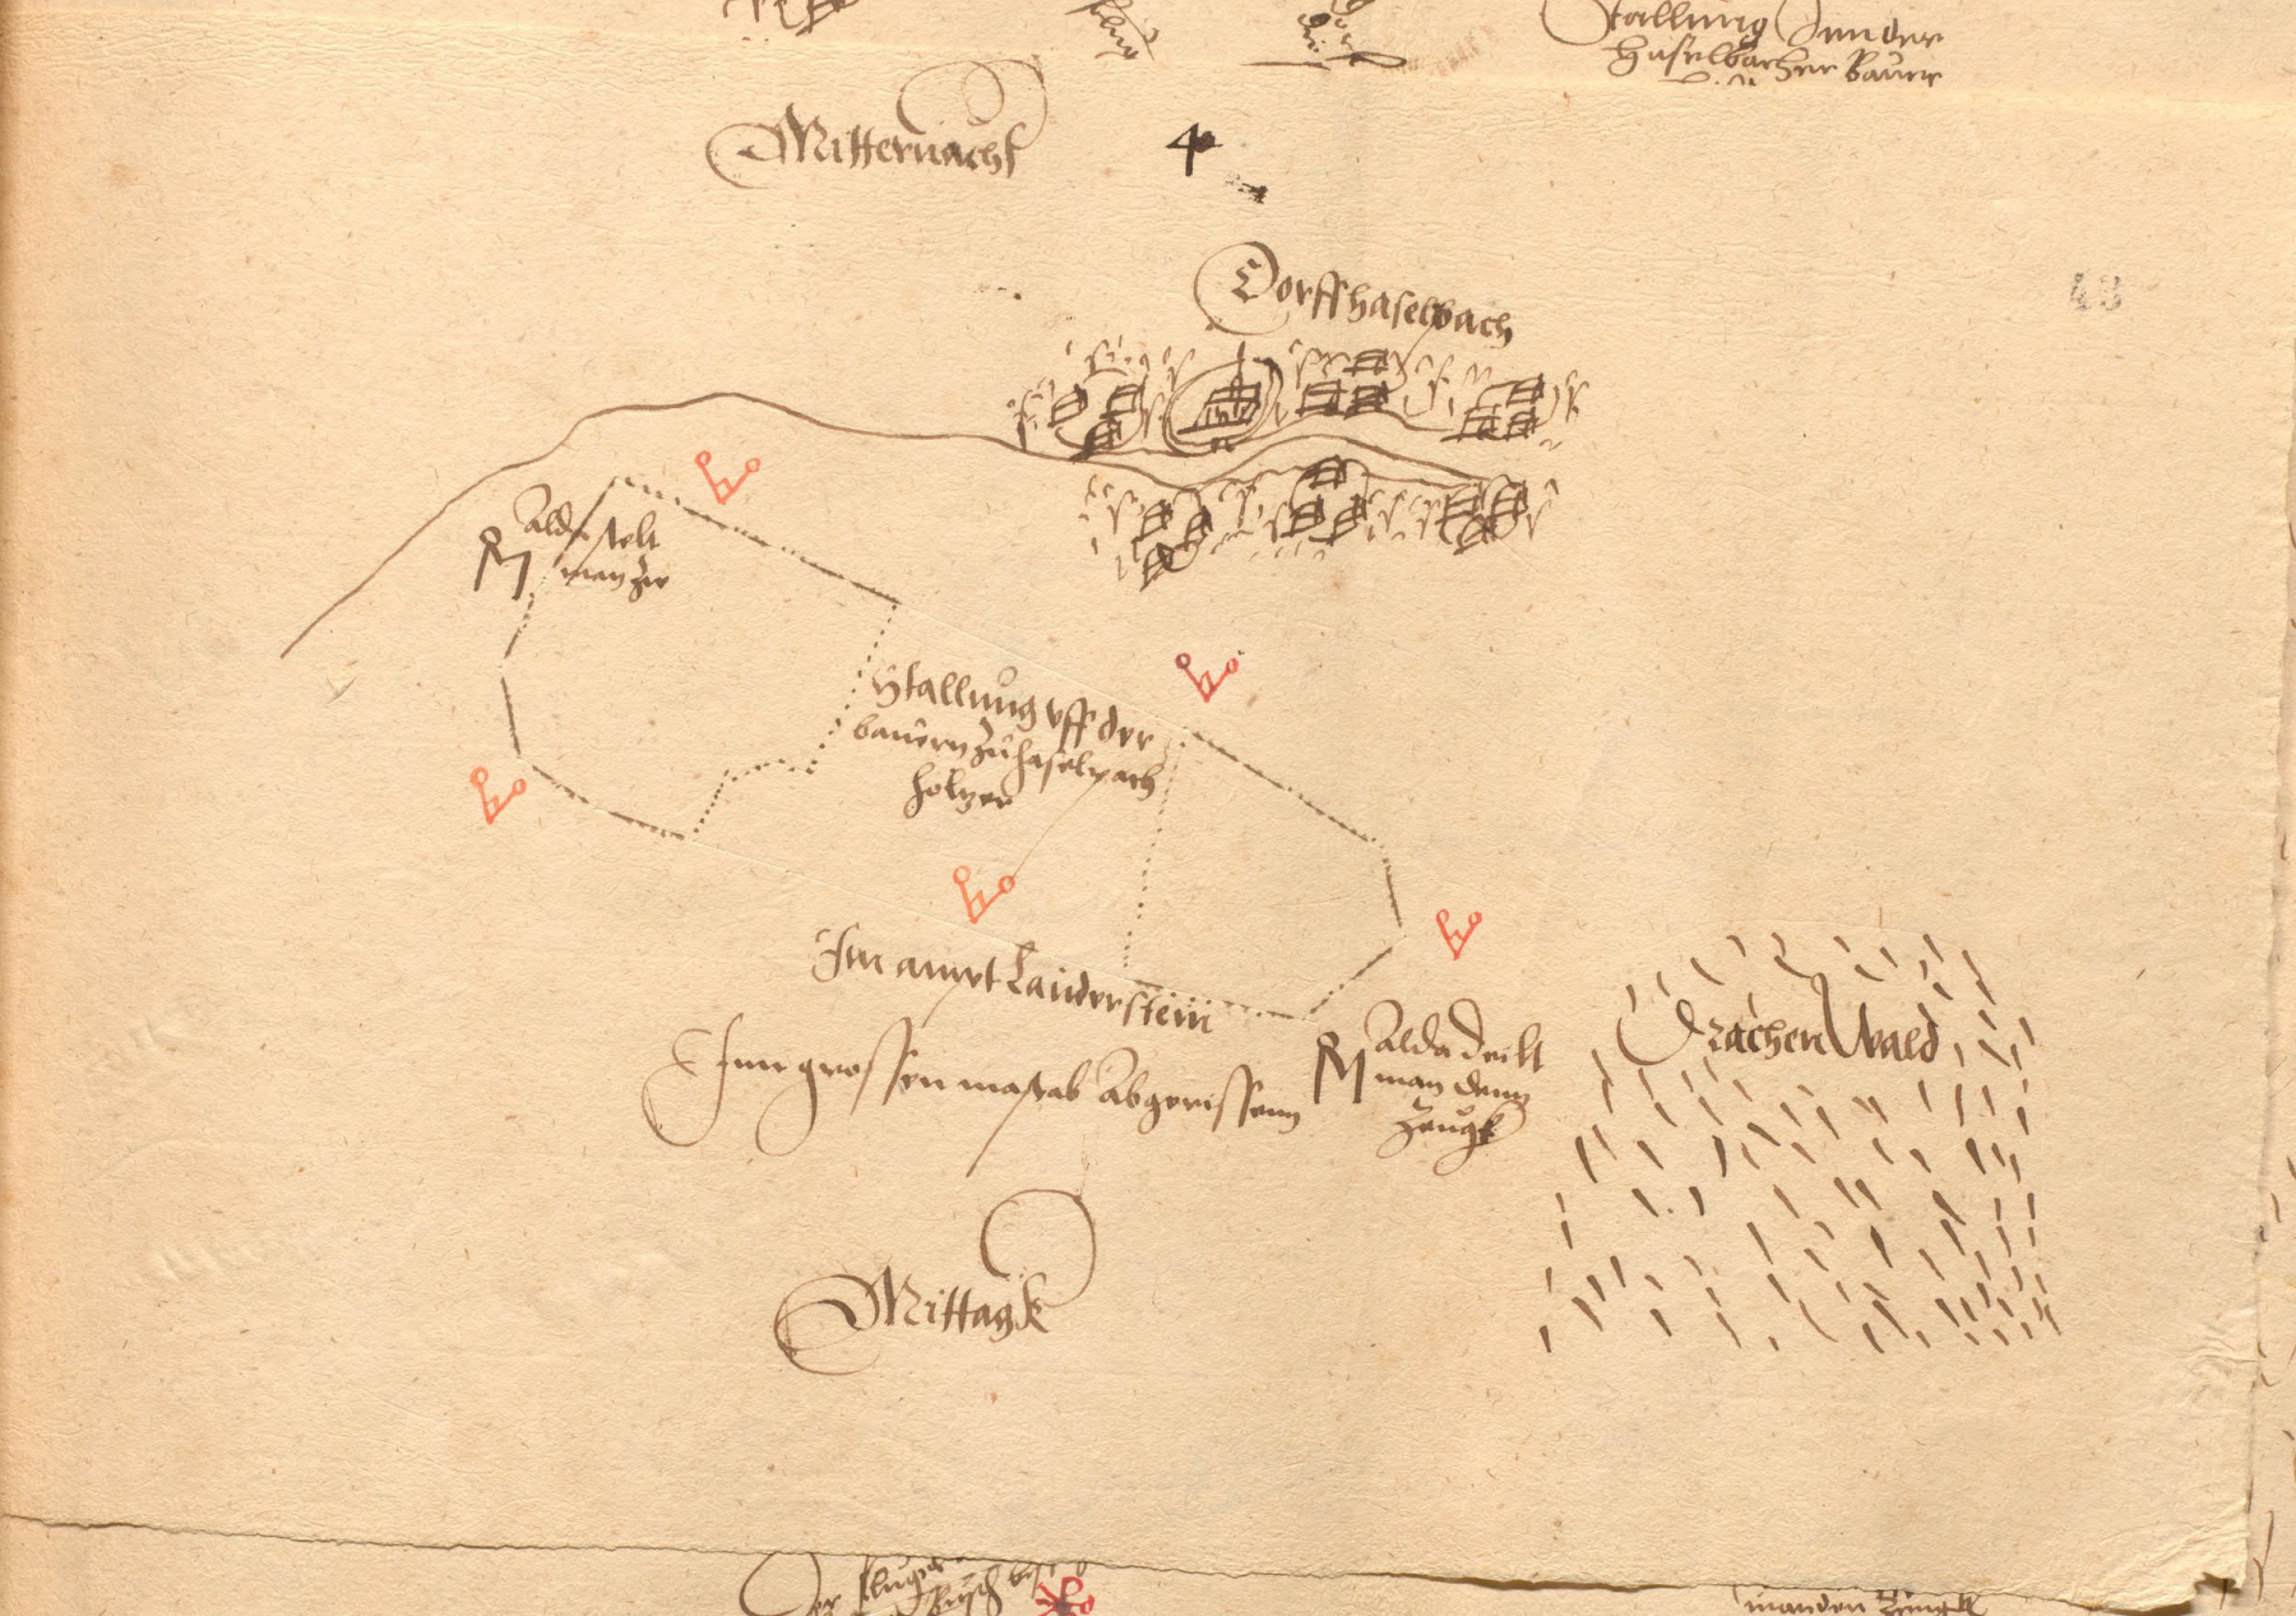 Stallung Inn der
Haselbacher Bauer
Mitternacht
4
Dorff haselbach
43
Alda stelt
man zu
Stallung vff der
bauern zu haselpach
holtzer
Im ampt Lauderstein
Inn grossen mastab Abgerissenn
Alda deilt
man denn
Zeugk
Drachen Wald
Mittagk
Der
man den Zeugk